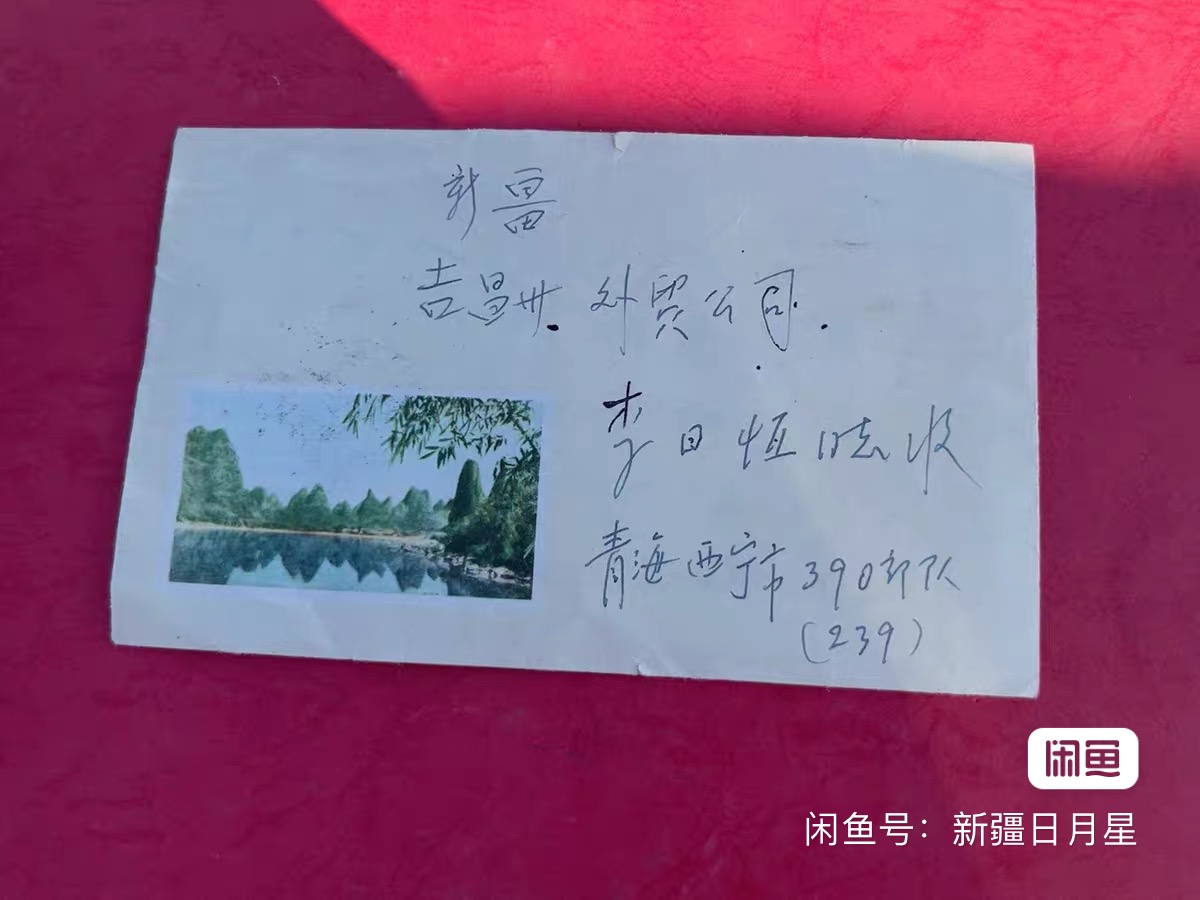 新畺
吉昌州 外贸公司.
李日恒 收
青海西宁市390部队
(239)
闲鱼
闲鱼号：新疆日月星